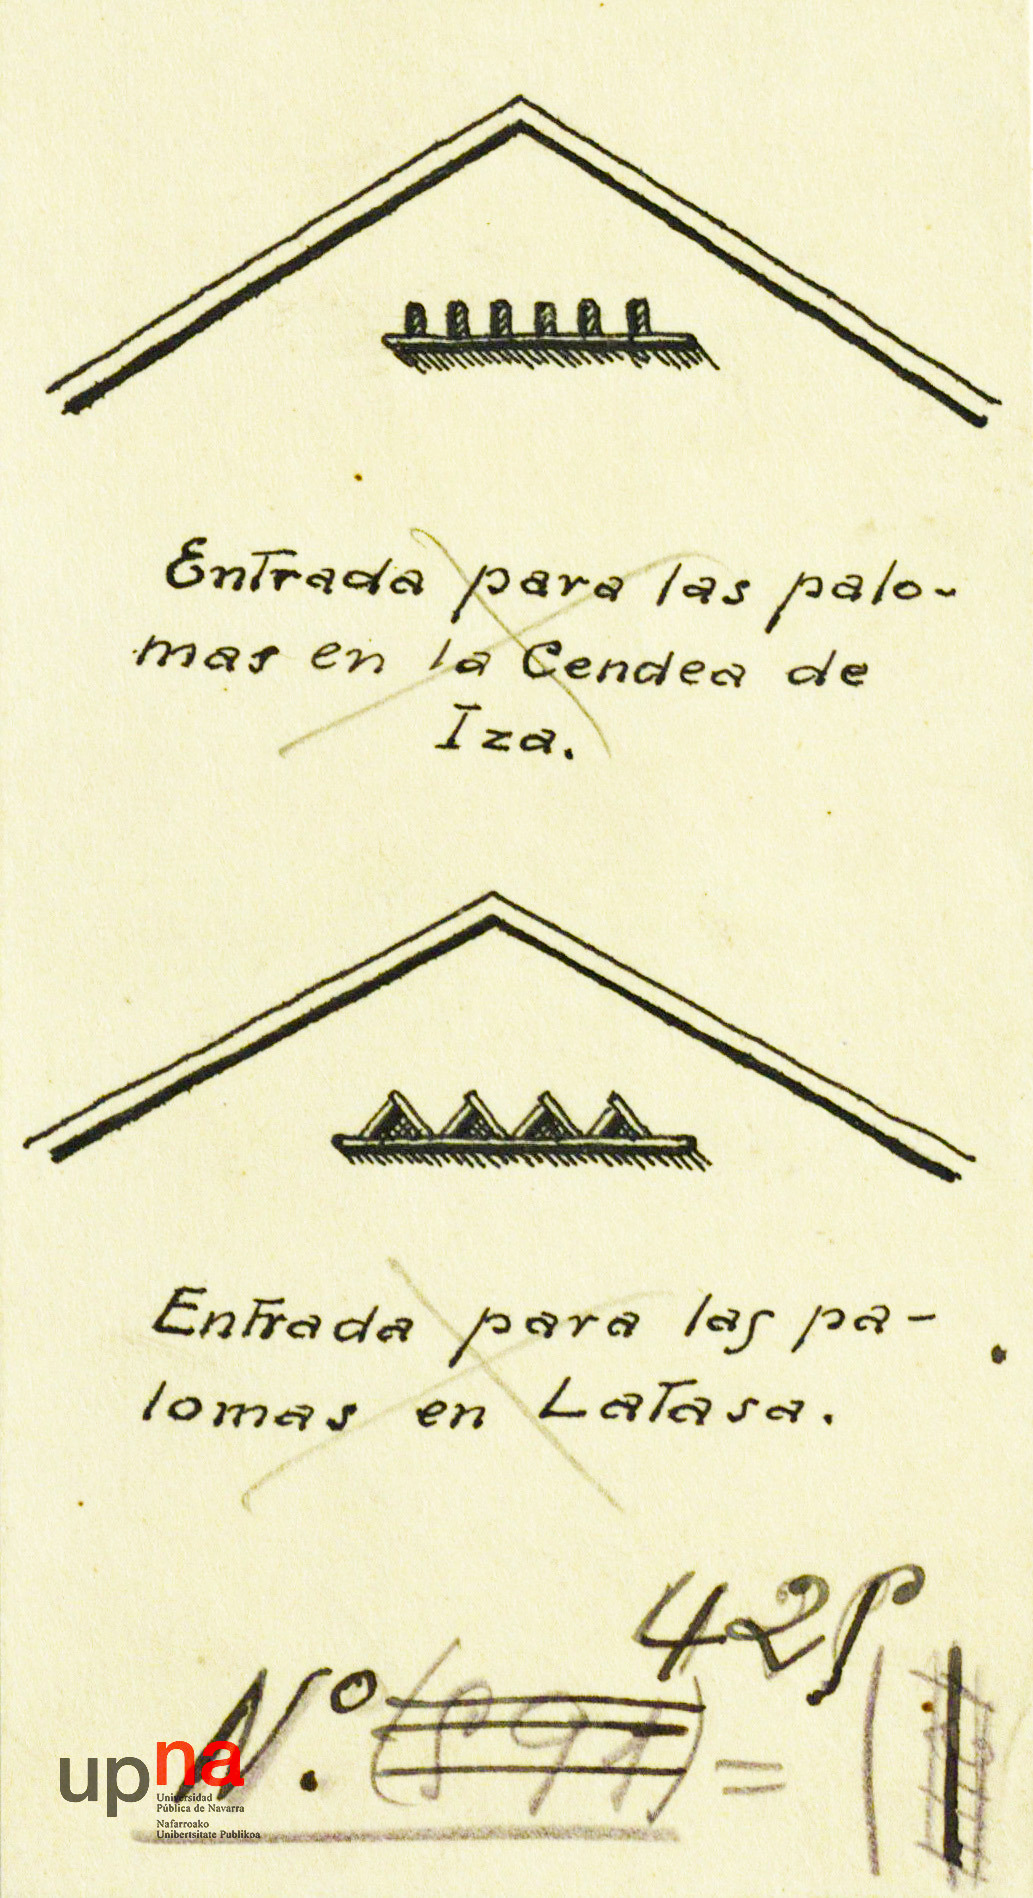 Entrada para las palo-
mas en la Cendea de
Iza.
Entrada para las pa-
lomas en Latasa.
42
N.º
upna
Universidad
Pública de Navarra
Nafarroako
Unibertsitate Publikoa